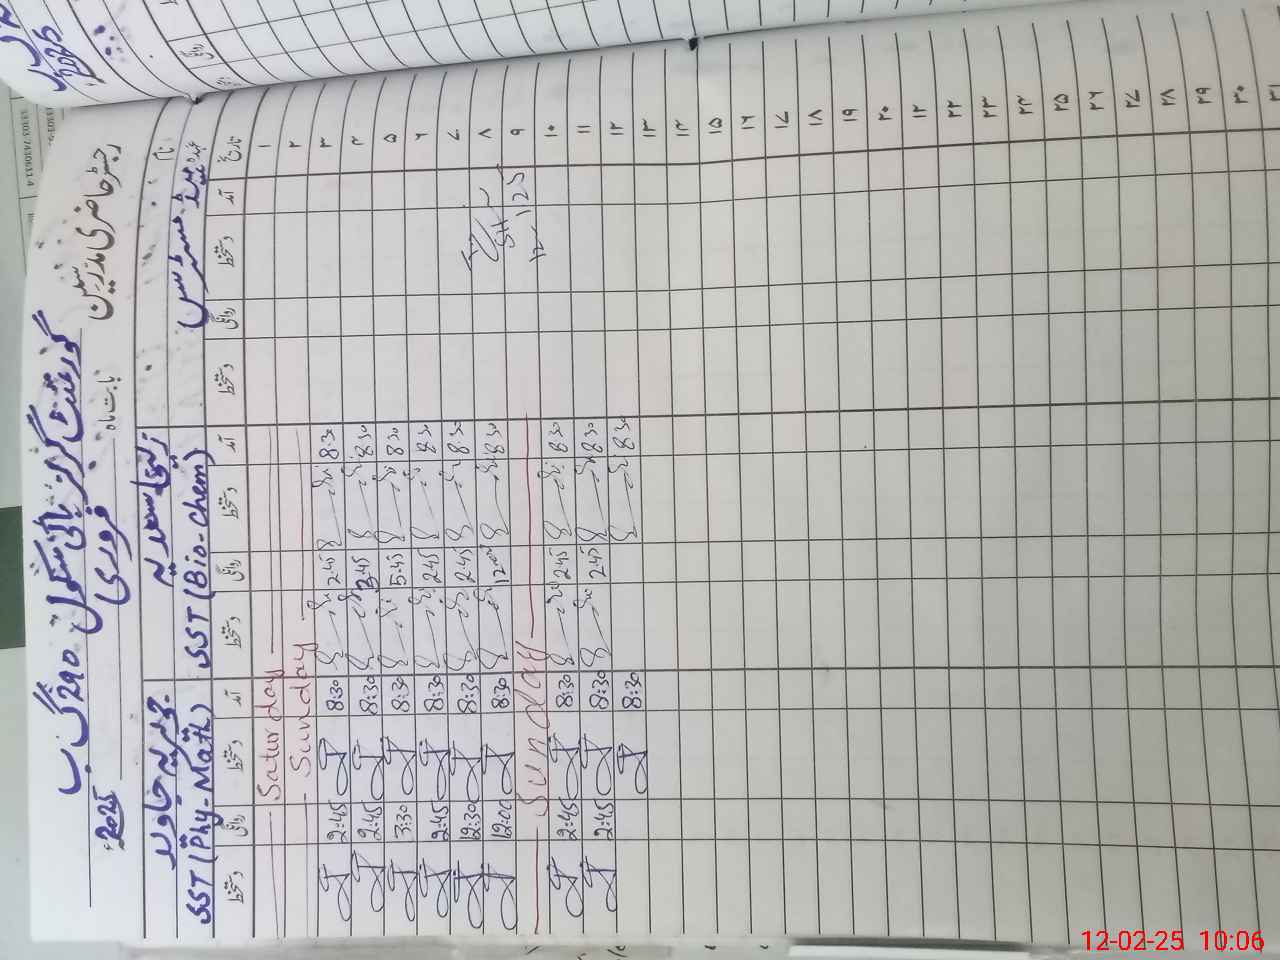 رجسٹر حاضری مدرسین
گورنمنٹ گرلز ہائی سکول 290 گ ب
بابت ماہ فروری 2025ء
نام
سعدیہ
جاوید
عہدہ ہیڈ مسٹرس
SST (Bio-Chem)
SST (Phy-Math)
تاریخ آمد دستخط روانگی دستخط آمد دستخط روانگی دستخط آمد دستخط روانگی دستخط
۱ Saturday
۲ Sunday
۳ 8:30 2:45 8:30 2:45
۴ 8:30 3:45 8:30 2:45
۵ 8:30 5:45 8:30 3:30
۶ 8:30 2:45 8:30 2:45
۷ 8:30 2:45 8:30 12:30
۸ 8:30 12:00 8:30 12:00
۹ Sunday
۱۰ 8:30 2:45 8:30 2:45
۱۱ 8:30 2:45 8:30 2:45
۱۲ 8:30 8:30
۱۳
۱۴
۱۵
۱۶
۱۷
۱۸
۱۹
۲۰
۲۱
۲۲
۲۳
۲۴
۲۵
۲۶
۲۷
۲۸
۲۹
۳۰
۳۱
2025
33303-7430633-4
12-02-25 10:06